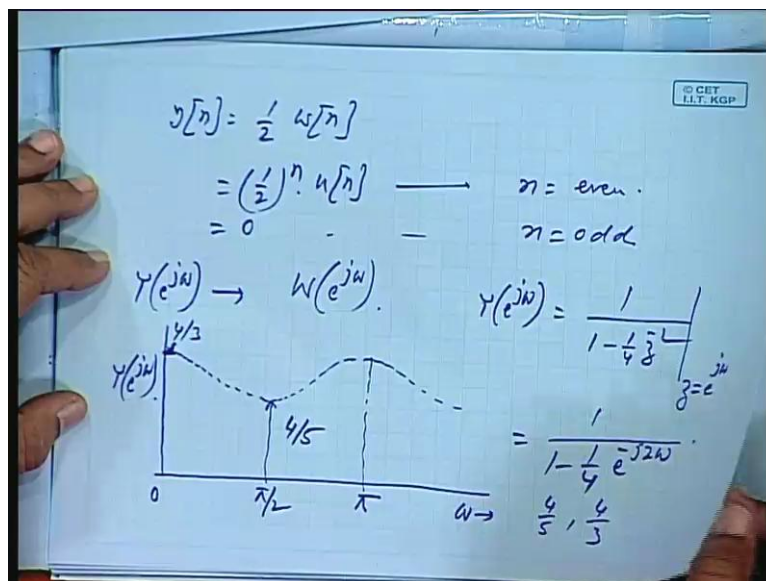 © CET
I.I.T. KGP
y[n] = 1/2 w[n]
= (1/2)^n . u[n] —— n = even.
= 0 - — n = odd
Y(e^jω) → W(e^jω).
Y(e^jω) = 1 / (1 - 1/4 z^-2) | z = e^jω
= 1 / (1 - 1/4 e^-j2ω) .
4/5 , 4/3
4/3
Y(e^jω)
4/5
0 π/2 π ω→